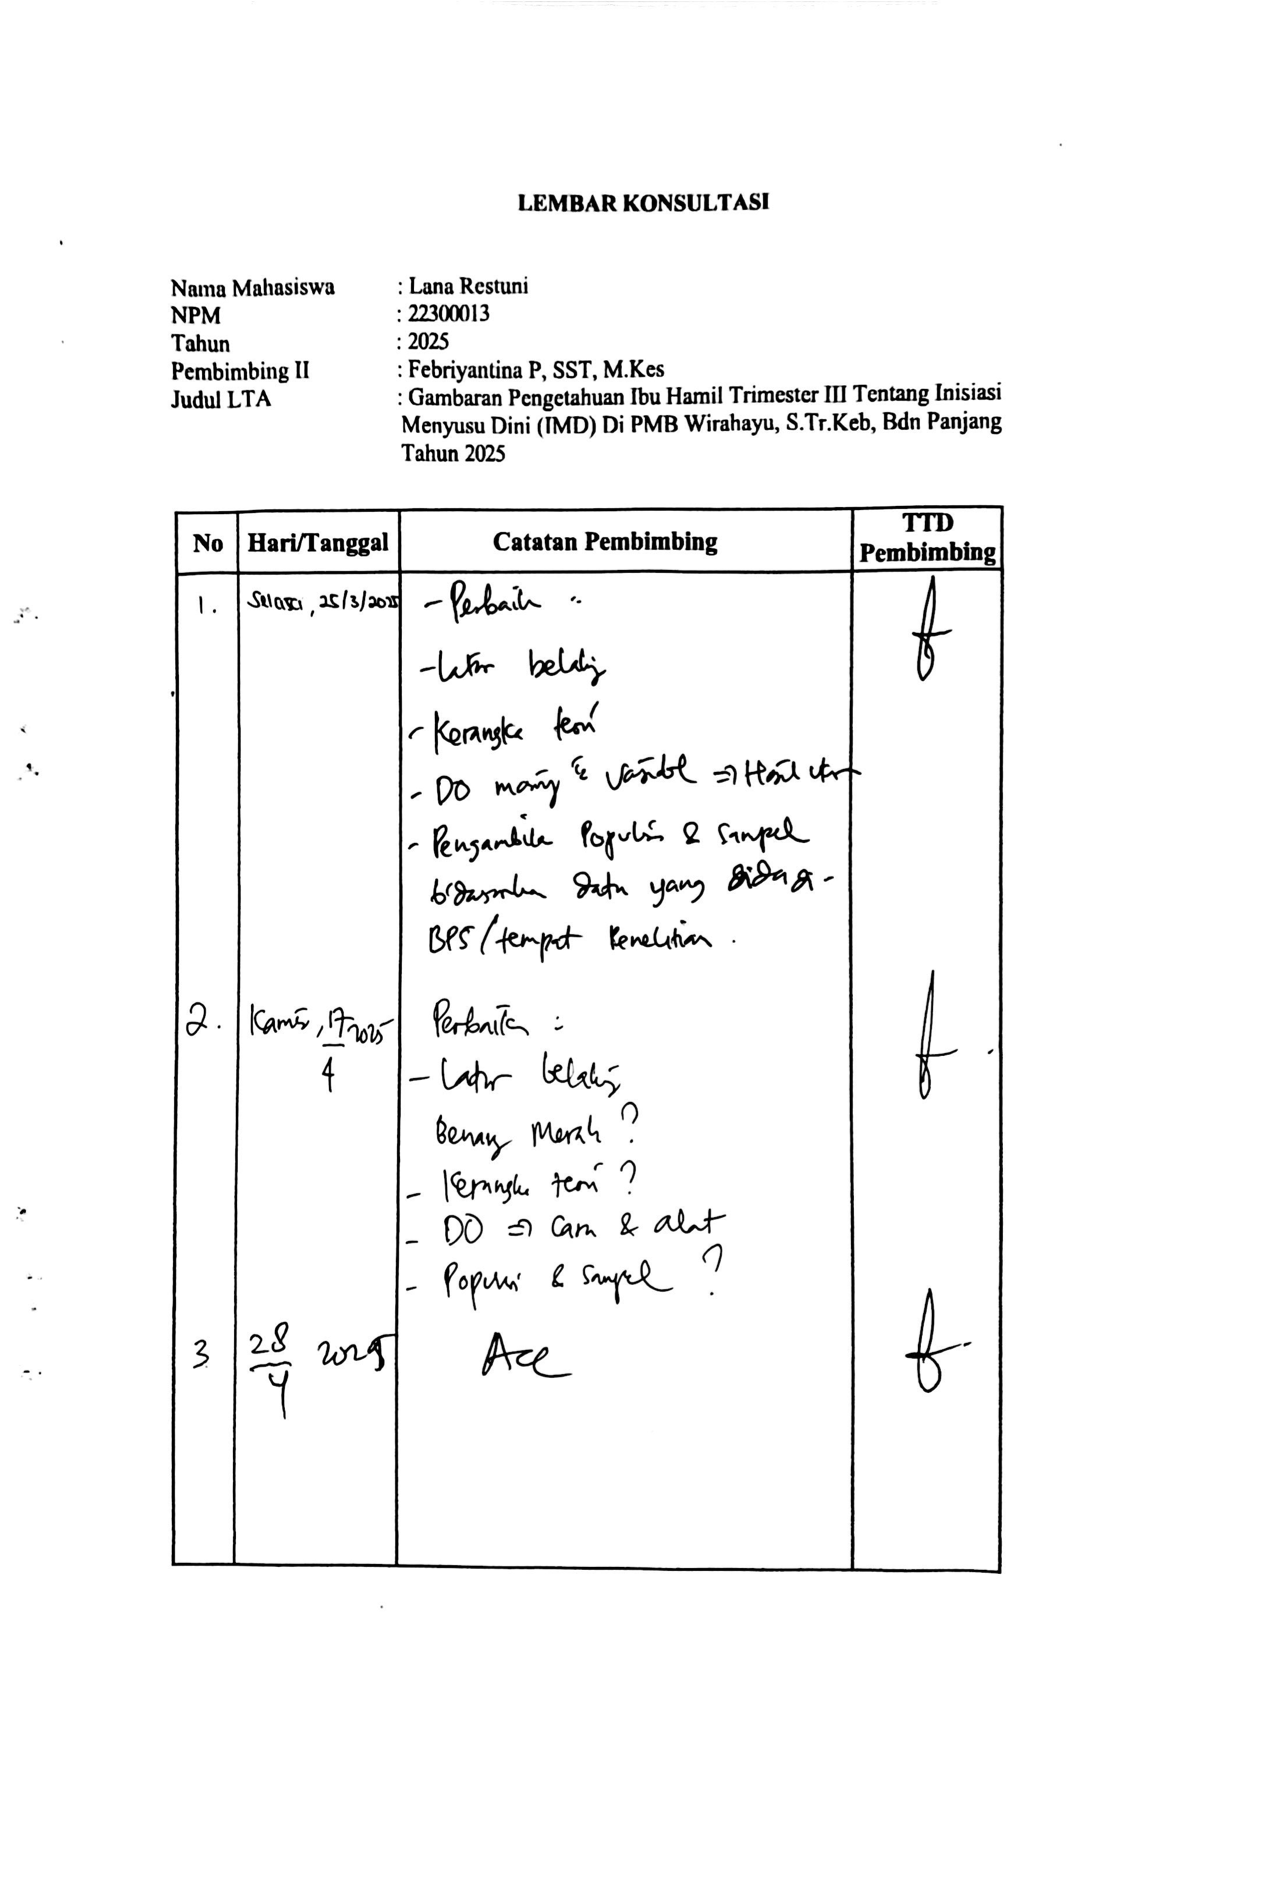 LEMBAR KONSULTASI
Nama Mahasiswa : Lana Restuni
NPM : 22300013
Tahun : 2025
Pembimbing II : Febriyantina P, SST, M.Kes
Judul LTA : Gambaran Pengetahuan Ibu Hamil Trimester III Tentang Inisiasi
Menyusu Dini (IMD) Di PMB Wirahayu, S.Tr.Keb, Bdn Panjang
Tahun 2025
No Hari/Tanggal Catatan Pembimbing TTD Pembimbing
1. Selasa, 25/3/2025 - Perbaiki :
- Latar belakang
- Kerangka teori
- DO variabel => Hasil ukur
- Pengambilan Populasi & Sampel
data yang
BPS/tempat Penelitian.
2. Kamis, 17/4 2025 Perbaiki :
- Latar belakang
Benang Merah ?
- Kerangka teori ?
- DO => Cara & alat
- Populasi & Sampel ?
3 28/4 2025 Acc